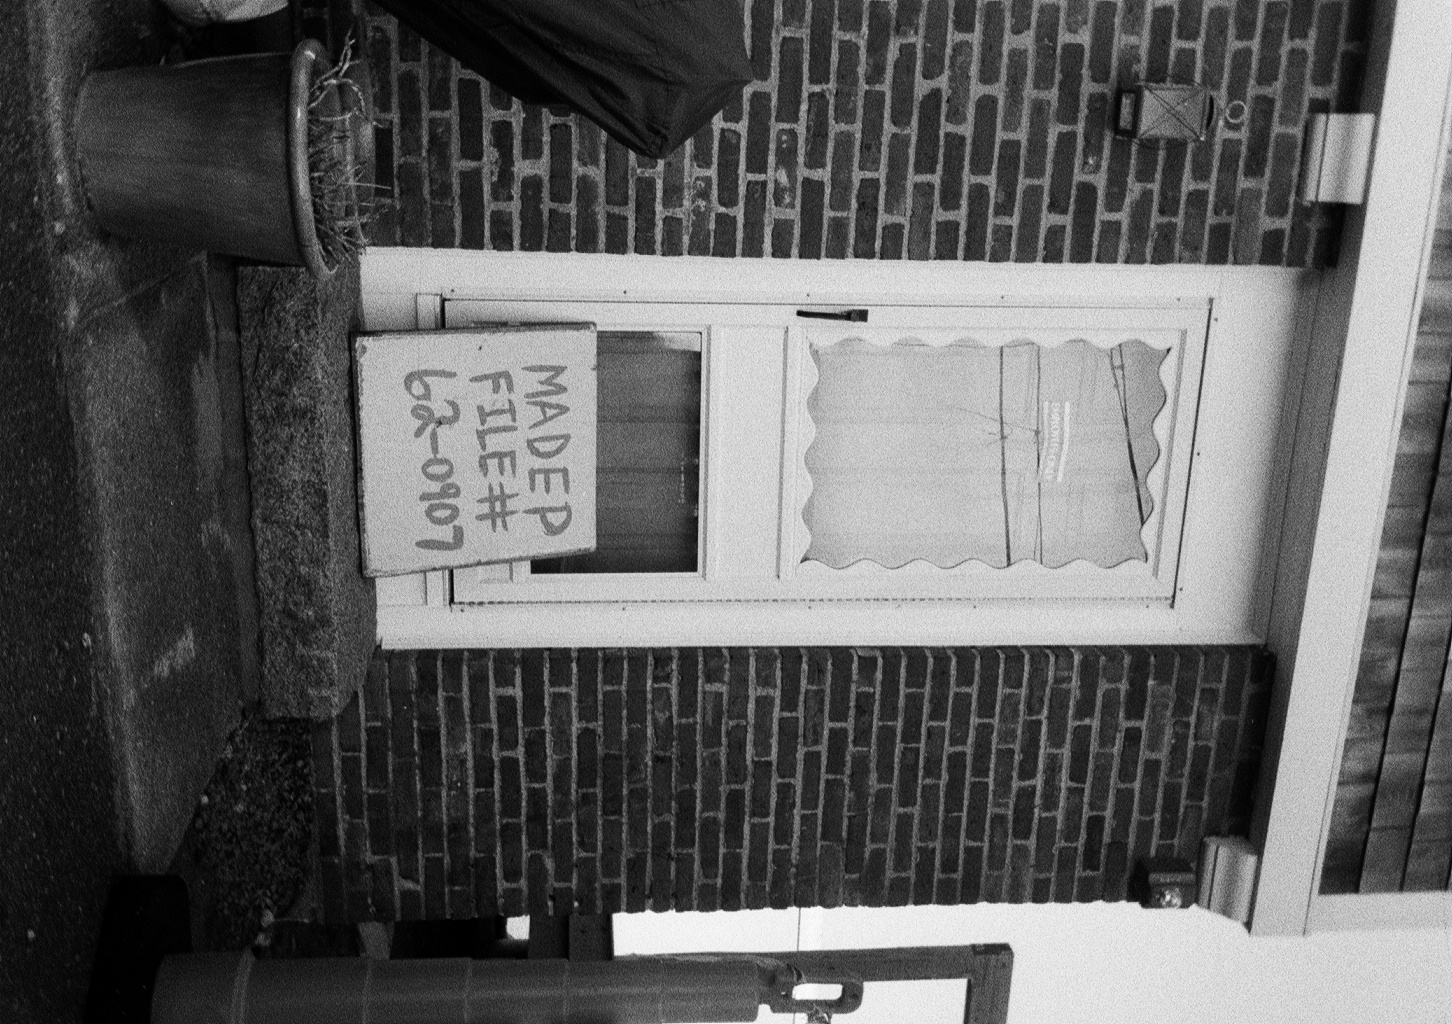 EMPLOYEES ONLY
MADEP
FILE#
62-0907